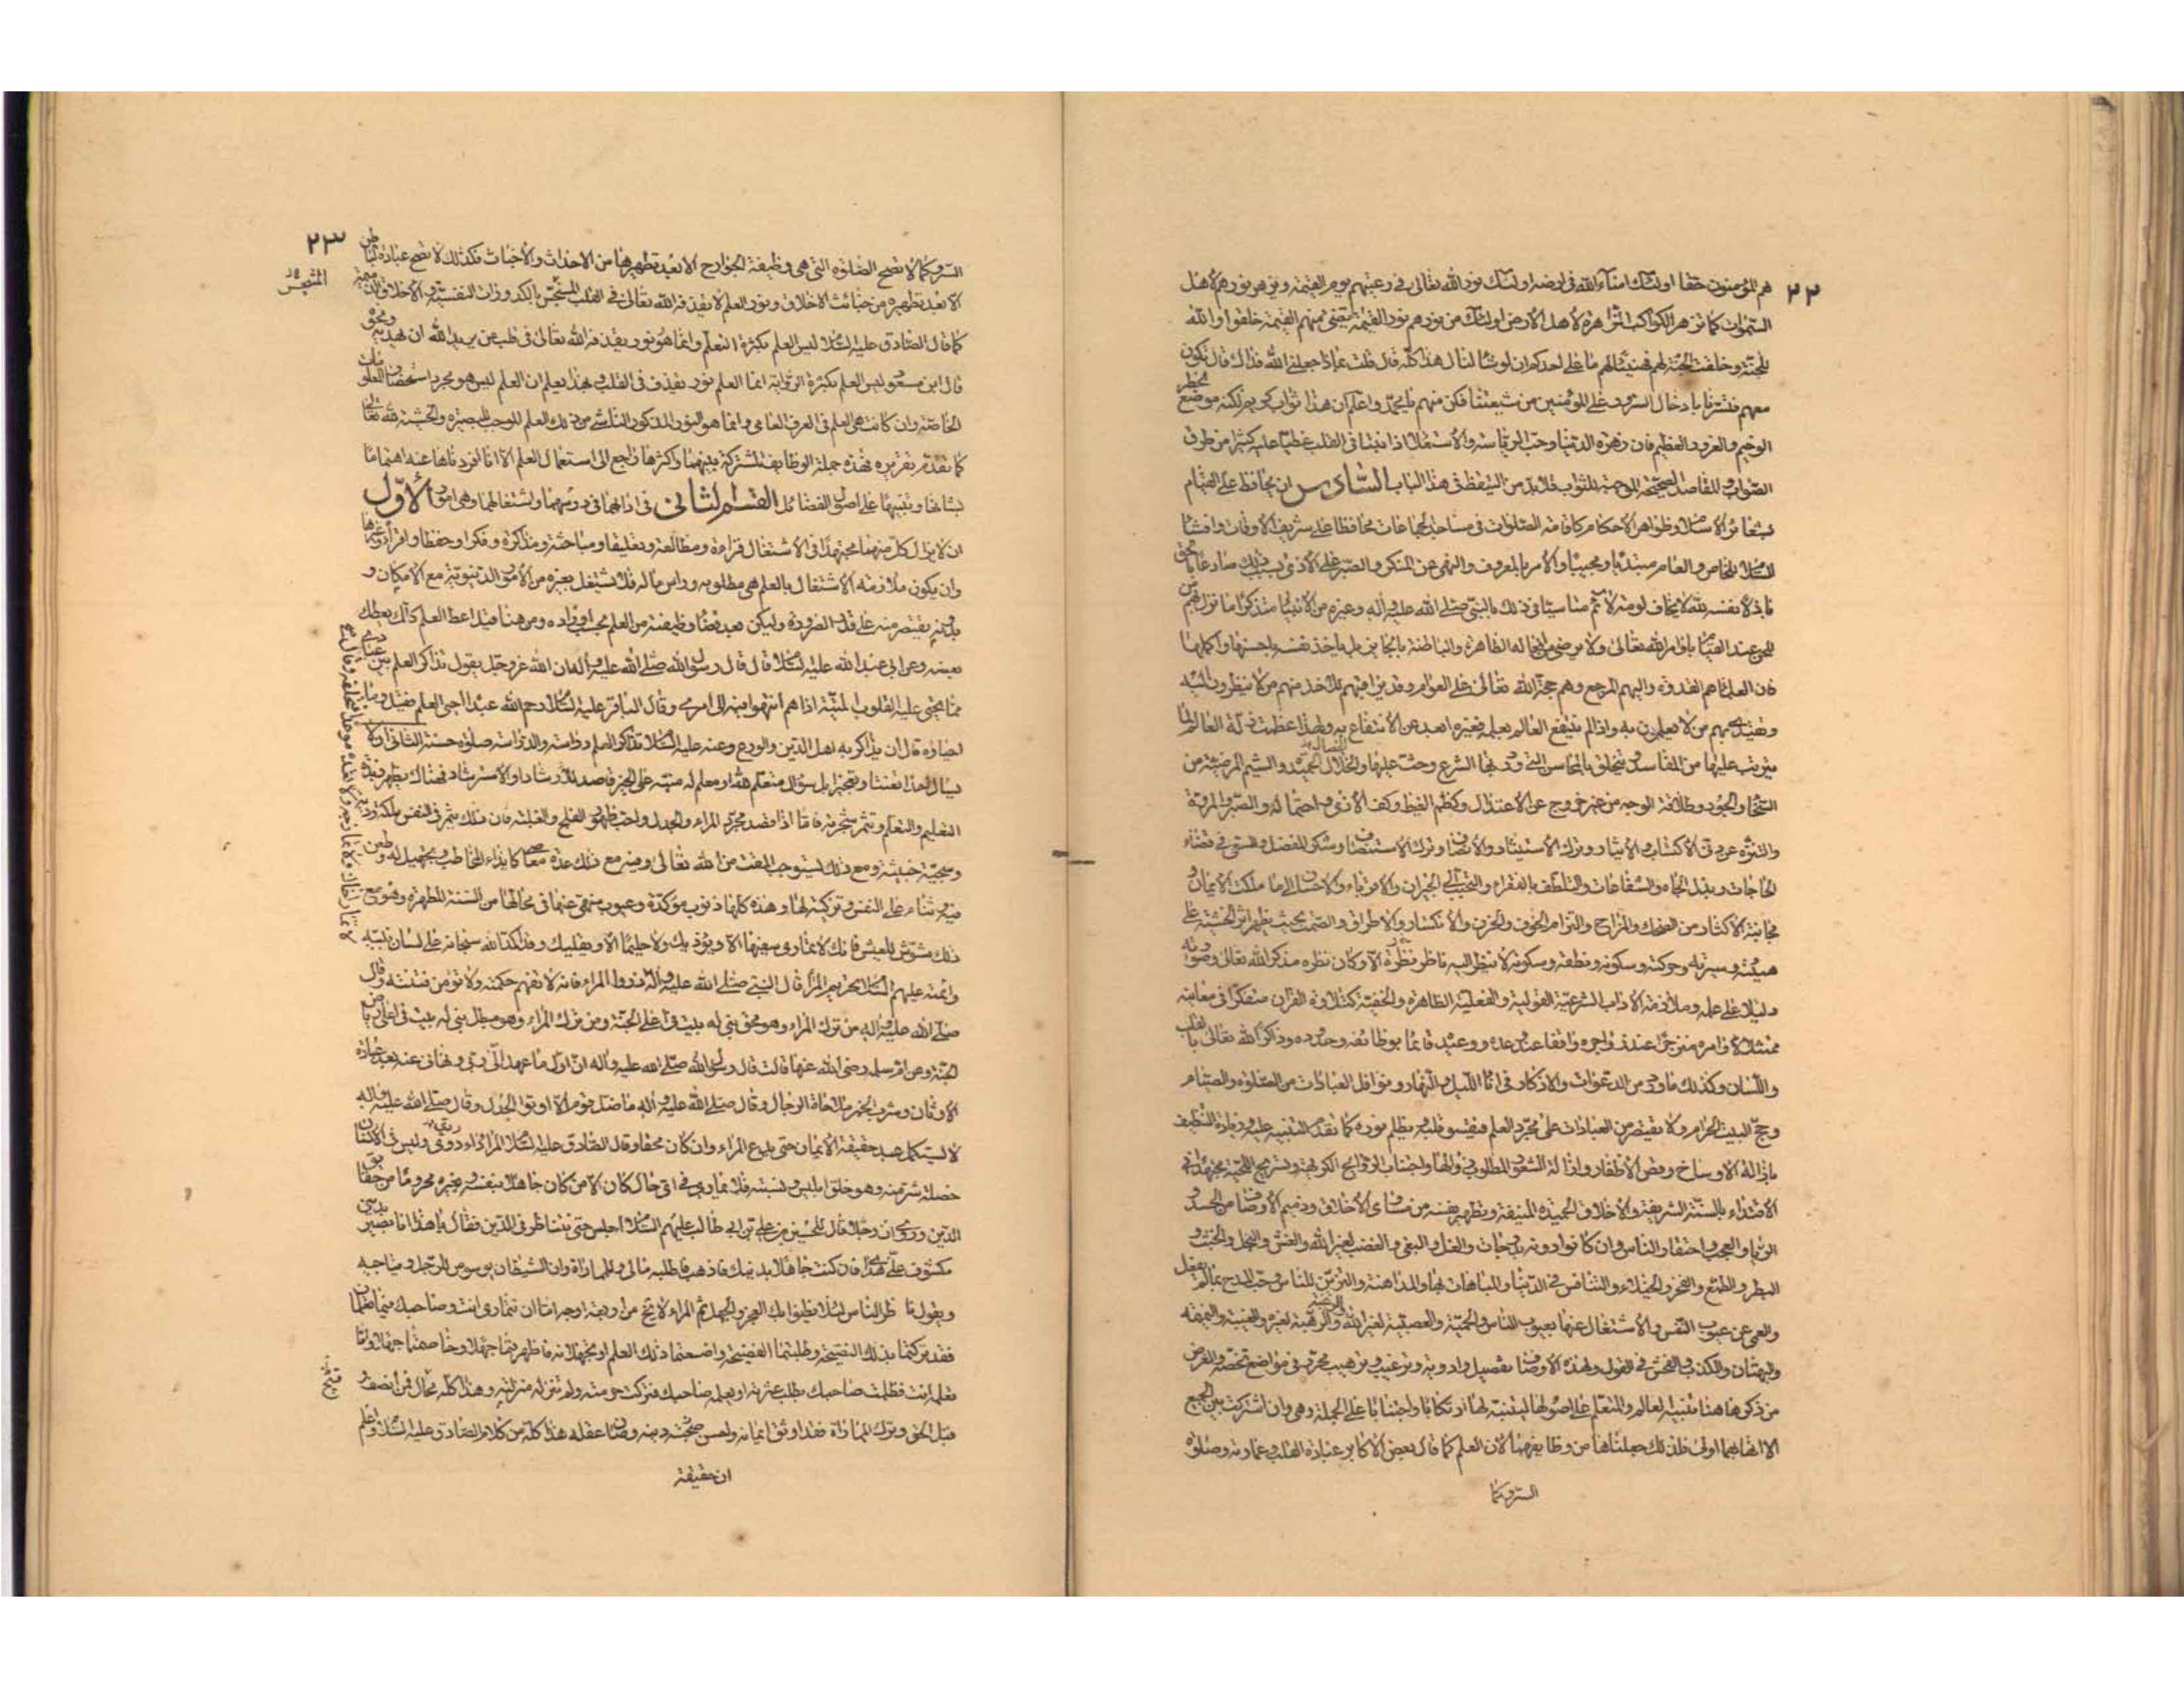 ٢٢
هم المؤمنون حقا اولئك امناء الله في ارضه اولئك نور الله تعالى في رعيتهم يوم القيمة ويزهر نورهم لاهل
السموات كما تزهر الكواكب الزاهرة لاهل الارض اولئك من نورهم نور القيمة تضئ منهم القيمة خلقوا والله
للجنة وخلقت الجنة لهم فهنيئا لهم ما على احدكم ان لو شاء لنال هذا كله قال قلت بماذا جعلني الله فداك قال تكون
معهم فتسرنا بادخال السرور على المؤمنين من شيعتنا فكن منهم يا محمد واعلم ان هذا ثواب كريم لكنه موضع الخطر
الوخيم والغرور العظيم فان زهرة الدنيا وحب الرياسة والاستعلاء اذا نبتا في القلب غطيا عليه كثيرا من طرق
الصواب والمقاصد الصحيحة الموجبة للثواب فلا بد من التيقظ في هذا الباب السادس ان يحافظ على القيام
بشعائر الاسلام وظواهر الاحكام كاقامة الصلوات في مساجد الجماعات محافظا على شريف الاوقات وافشاء
السلام للخاص والعام مبتديا ومجيبا والامر بالمعروف والنهي عن المنكر والصبر على الاذى بسبب ذلك صادعا بالحق
باذلا نفسه لله لا يخاف لومة لائم متاسيا في ذلك بالنبي صلى الله عليه واله وغيره من الانبياء متذكرا ما نزل بهم من
المحن عند القيام باوامر الله تعالى ولا يرضى من افعاله الظاهرة والباطنة بالجائز بل ياخذ نفسه باحسنها واكملها
فان العلماء هم القدوة واليهم المرجع وهم حجة الله تعالى على العوام وقد يراقبهم للاخذ منهم من لا ينظرون اليه
ويهتدي بهم من لا يعلمون به واذا لم ينتفع العالم بعلمه فغيره ابعد عن الانتفاع به ولهذا عظمت زلة العالم لما
يترتب عليها من المفاسد ويتخلق بالمحاسن التي ورد بها الشرع وحث عليها والخلال الحميدة والشيم المرضية من
السخاء والجود وطلاقة الوجه من غير خروج عن الاعتدال وكظم الغيظ وكف الاذى واحتماله والصبر والمروة
والتنزه عن دني الاكتساب والايثار وترك الاستيثار والانصاف وترك الاستنصاف وشكر المفضل والسعي في قضاء
الحاجات وبذل الجاه والشفاعات والتلطف بالفقراء والتحبب الى الجيران والاقرباء والاحسان الى ما ملكت الايمان و
مجانبة الاكثار من الضحك والمزاح والتزام الخوف والحزن والانكسار والاطراق والصمت بحيث يظهر اثر الخشية على
هيئته وسيرته وحركته وسكونه ونطقه وسكوته لا ينظر اليه ناظر الا وكان نظره مذكرا لله تعالى وصورته
دليلا على علمه وملازمة الاداب الشرعية القولية والفعلية الظاهرة والخفية كتلاوة القران متفكرا في معانيه
ممتثلا لاوامره منزجرا عند زواجره واقفا عند وعده ووعيده قائما بوظائفه وحدوده وذاكرا لله تعالى بالقلب
واللسان وكذلك ما ورد من الدعوات والاذكار في اناء الليل والنهار ونوافل العبادات من الصلوة والصيام
وحج البيت الحرام ولا يقتصر من العبادات على مجرد العلم فيقسو قلبه ويظلم نوره كما تقدم التنبيه عليه وزيادة التنظيف
بازالة الاوساخ وقص الاظفار وازالة الشعور المطلوب زوالها واجتناب الروائح الكريهة وتسريح اللحية مجتهدا في
الاقتداء بالسنة الشريفة والاخلاق الحميدة المنيفة ويطهر نفسه من مساوى الاخلاق وذميم الاوصاف من الحسد و
الرياء والعجب واحتقار الناس وان كانوا دونه بدرجات والغل والبغي والغضب لغير الله والغش والبخل والخبث و
البطر والطمع والفخر والخيلاء والتنافس في الدنيا والمباهات بها والمداهنة والتزين للناس وحب المدح بما لم يفعل
والعمى عن عيوب النفس والاشتغال عنها بعيوب الناس والحمية والعصبية لغير الله والرهبة لغيره والغيبة والنميمة
والبهتان والكذب والفحش في القول ولهذه الاوصاف تفصيل وادوية وترغيب وترهيب محرر في مواضع تخصه والغرض
من ذكرها هنا تنبيه العالم والمتعلم على اصولها ليتنبه لها ارتكابا واجتنابا على الجملة وهي وان اشتركت بين الجميع
الا انها بهما اولى فلذلك جعلناها من وظايفهما لان العلم كما قال بعض الاكابر عبادة القلب وعمارته وصلوة
السر وكما
٢٣
السر وكما لا تصح الصلوة التي هي وظيفة الجوارح الا بعد تطهيرها من الاحداث والاخباث فكذلك لا تصح عبادة الباطن
الا بعد تطهيره من خبائث الاخلاق ونور العلم لا يقذفه الله تعالى في القلب المتنجس بالكدورات النفسية والاخلاق الذميمة
كما قال الصادق عليه السلام ليس العلم بكثرة التعلم وانما هو نور يقذفه الله تعالى في قلب من يريد الله ان يهديه ونحوه
قال ابن مسعود ليس العلم بكثرة الرواية انما العلم نور يقذف في القلب وبهذا يعلم ان العلم ليس هو مجرد استحضار المعلومات
الخاصة وان كانت هي العلم في العرف العامي وانما هو النور المذكور الناشئ من ذلك العلم الموجب للبصيرة والخشية لله تعالى
كما تقدم تقريره فهذه جملة الوظايف المشتركة بينهما واكثرها راجع الى استعمال العلم الا انا افردناها عنه اهتماما
بشانها وتنبيها على اصول الفضائل القسم الثاني في ادابهما في درسهما واشتغالهما وهي امور الاول
ان لا يزال كل منهما مجتهدا في الاشتغال قراءة ومطالعة وتعليقا ومباحثة ومذاكرة وفكرا وحفظا واقراء وغيرها
وان يكون ملازمة الاشتغال بالعلم هي مطلوبه وراس ماله فلا يشتغل بغيره من الامور الدنيوية مع الامكان و
بدونه يقتصر منه على قدر الضرورة وليكن بعد قضاء وظيفته من العلم بحسب اوراده ومن هنا قيل اعط العلم كلك يعطك
بعضه وعن ابي عبد الله عليه السلام قال قال رسول الله صلى الله عليه واله ان الله عز وجل يقول تذاكر العلم بين عبادي
مما تحيى عليه القلوب الميتة اذا هم انتهوا فيه الى امري وقال الباقر عليه السلام رحم الله عبدا احيى العلم فقيل وما
احياؤه قال ان يذاكر به اهل الدين والورع وعنه عليه السلام تذاكر العلم دراسة والدراسة صلوة حسنة الثاني ان لا
يسال احدا تعنتا وتعجيزا بل سؤال متعلم لله او معلم له منبه على الخير قاصد للارشاد او الاسترشاد فهناك يظهر زبدة
التعليم والتعلم وتثمر شجرته فاما اذا قصد مجرد المراء والجدل واحب ظهور الفلج والغلبة فان ذلك يثمر في النفس ملكة ردية
وسجية خبيثة ومع ذلك يستوجب المقت من الله تعالى وفيه مع ذلك عدة معاص كايذاء المخاطب وتجهيل له وطعن
فيه وثناء على النفس وتزكية لها وهذه كلها ذنوب مؤكدة وعيوب منهي عنها في محالها من السنة المطهرة وهو مع
ذلك مشوش للعيش فانك لا تماري سفيها الا ويؤذيك ولا حليما الا ويقليك وقد اكد الله سبحانه على لسان نبيه
وائمته عليهم السلام تحريم المراء قال النبي صلى الله عليه واله ذروا المراء فانه لا تفهم حكمته ولا تؤمن فتنته وقال
صلى الله عليه واله من ترك المراء وهو محق بني له بيت في اعلى الجنة ومن ترك المراء وهو مبطل بني له بيت في ربض
الجنة وعن ام سلمة رضي الله عنها قالت قال رسول الله صلى الله عليه واله ان اول ما عهد الي ربي ونهاني عنه بعد عبادة
الاوثان وشرب الخمر ملاحاة الرجال وقال صلى الله عليه واله ما ضل قوم الا اوتوا الجدل وقال صلى الله عليه واله
لا يستكمل عبد حقيقة الايمان حتى يدع المراء وان كان محقا وقال الصادق عليه السلام المراء داء دوي وليس في الانسان
خصلة شر منه وهو خلق ابليس ونسبته فلا يماري في اي حال كان الا من كان جاهلا بنفسه وبغيره محروما من حقائق
الدين وروي ان رجلا قال للحسين بن علي بن ابي طالب عليهم السلام اجلس حتى نتناظر في الدين فقال يا هذا انا بصير بديني
مكشوف علي هداي فان كنت جاهلا بدينك فاذهب فاطلبه مالي وللمماراة وان الشيطان يوسوس للرجل ويناجيه
ويقول ناظر الناس لئلا يظنوا بك العجز والجهل ثم المراء لا يخ من اربعة اوجه اما ان تتمارى انت وصاحبك فيما تعلمان
فقد تركتما بذلك النصيحة وطلبتما الفضيحة واضعتما ذلك العلم او تجهلانه فاظهرتما جهلا وخاصمتما جهلا واما
تعلمه انت فظلمت صاحبك بطلب عثرته او يعلمه صاحبك فتركت حرمته ولم تنزله منزلته وهذا كله محال فمن انصف و
قبل الحق وترك المماراة فقد اوثق ايمانه واحسن صحبة دينه وصان عقله هذا كله من كلام الصادق عليه السلام واعلم
ان حقيقة